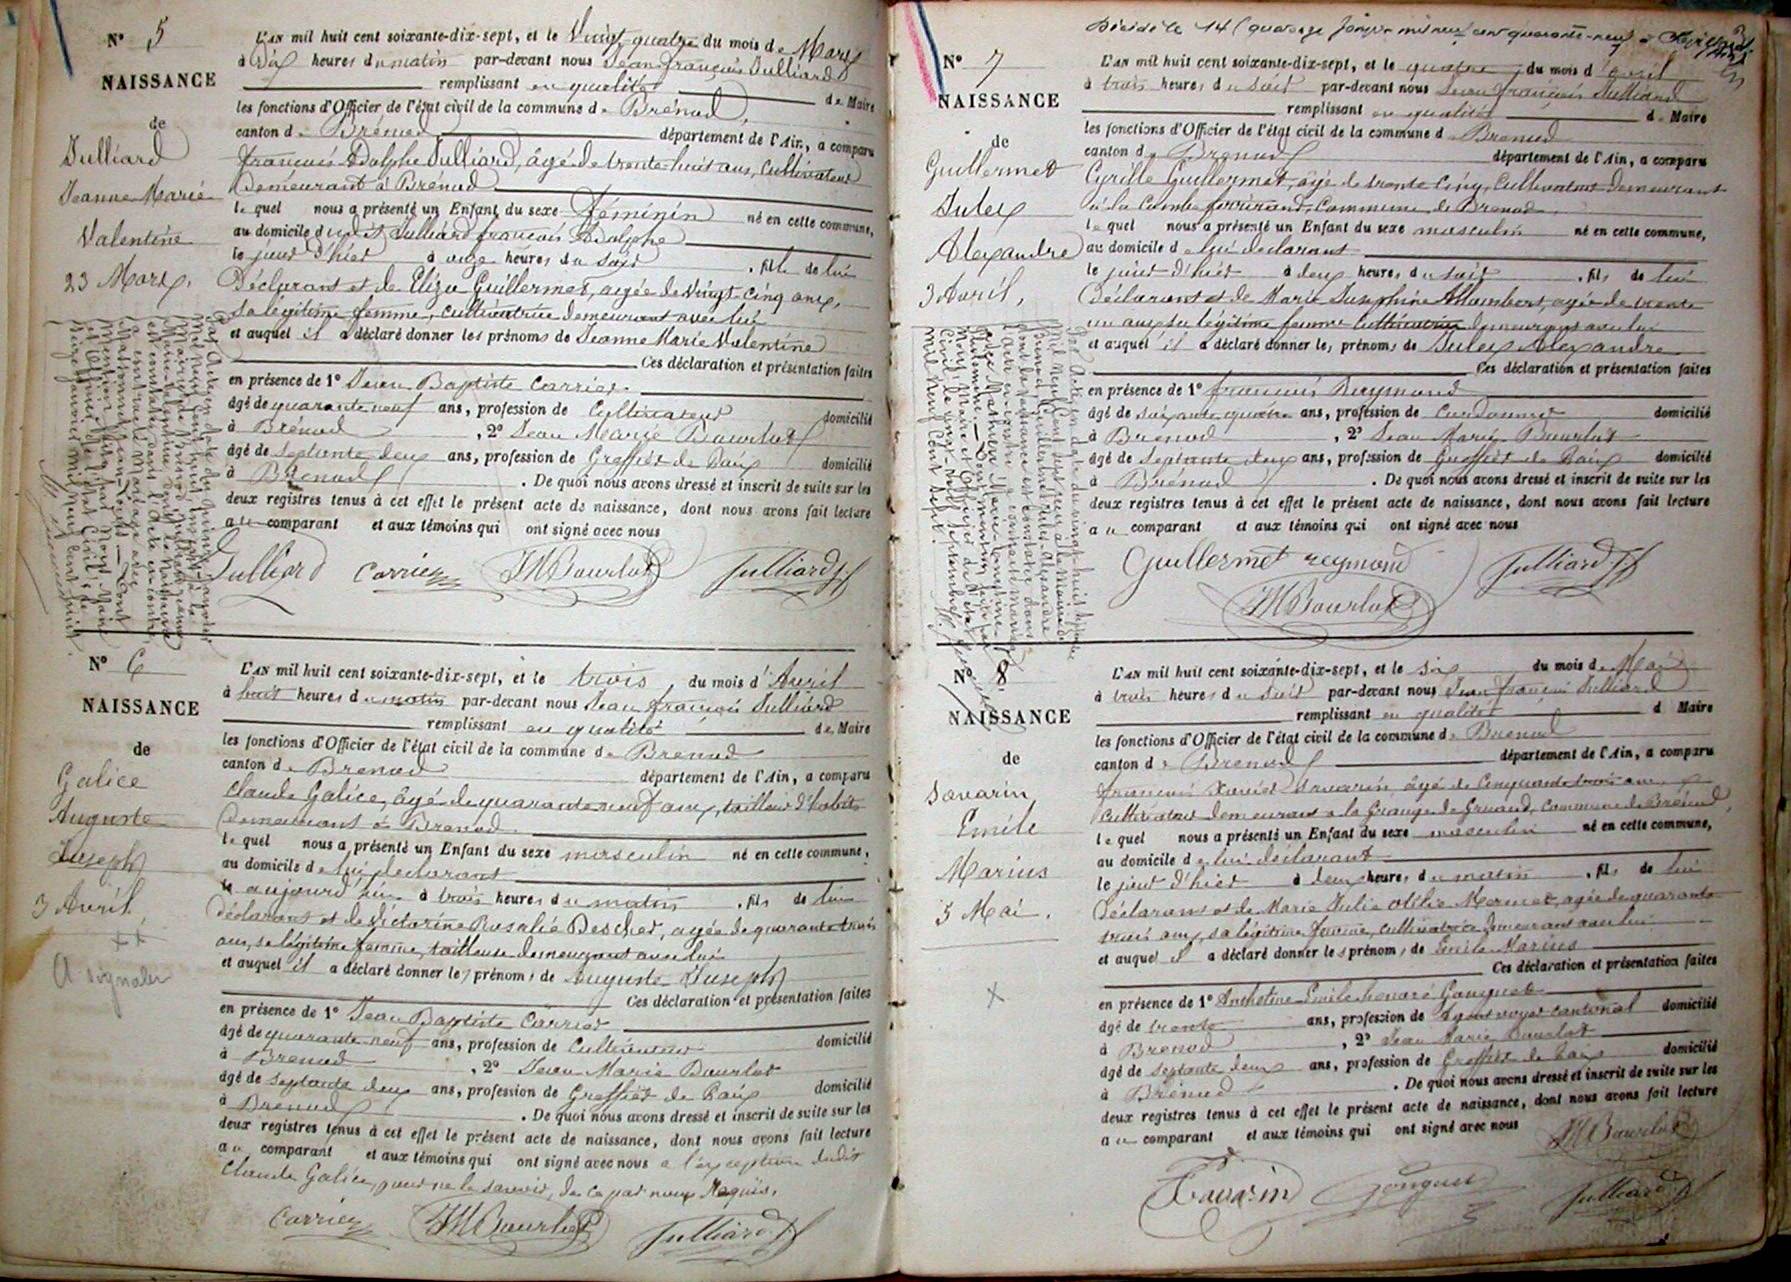 N° 5
NAISSANCE
de
Julliard
Jeanne Marie
Valentine
23 Mars.
L'AN mil huit cent soixante-dix-sept, et le Vingt-quatre du mois de Mars
à dix heures du matin par-devant nous Jean François Julliard
remplissant en qualité de Maire
les fonctions d'Officier de l'état civil de la commune de Brénod,
canton de Brénod département de l'Ain, a comparu
François Adolphe Julliard, âgé de trente-huit ans, Cultivateur
Demeurant à Brénod
lequel nous a présenté un Enfant du sexe féminin né en cette commune,
au domicile dudit Julliard françois Adolphe
le jour d'hier à onze heures du soir, fille de lui
Déclarant et de Eliza Guillermet, agée de vingt-cinq ans,
sa légitime femme, cultivatrice demeurant avec lui
et auquel il a déclaré donner les prénoms de Jeanne Marie Valentine
Ces déclaration et présentation faites
en présence de 1° Jean Baptiste Carrier
âgé de quarante neuf ans, profession de Cultivateur domicilié
à Brénod, 2° Jean Marie Bourlot
âgé de septante deux ans, profession de Greffier de Paix domicilié
à Brenod. De quoi nous avons dressé et inscrit de suite sur les
deux registres tenus à cet effet le présent acte de naissance, dont nous avons fait lecture
au comparant et aux témoins qui ont signé avec nous
Julliard Carrier JMBourlot Julliard
N° 6
NAISSANCE
de
Galice
Auguste
Joseph
3 Avril
A signaler
L'AN mil huit cent soixante-dix-sept, et le trois du mois d'Avril
à huit heures du matin par-devant nous Jean françois Julliard
remplissant en qualité de Maire
les fonctions d'Officier de l'état civil de la commune de Brenod
canton de Brenod département de l'Ain, a comparu
Claude Galice, âgé de quarante neuf ans, tailleur d'habits
Demeurant à Brenod
lequel nous a présenté un Enfant du sexe masculin né en cette commune,
au domicile de lui déclarant
aujourd'hui à trois heures du matin, fils de lui
déclarant et de Victorine Rosalie Descher, agée de quarante trois
ans, sa légitime femme, tailleuse demeurant avec lui
et auquel il a déclaré donner les prénoms de Auguste Joseph
Ces déclaration et présentation faites
en présence de 1° Jean Baptiste Carrier
âgé de quarante neuf ans, profession de Cultivateur domicilié
à Brenod, 2° Jean Marie Bourlot
âgé de septante deux ans, profession de Greffier de Paix domicilié
à Brenod. De quoi nous avons dressé et inscrit de suite sur les
deux registres tenus à cet effet le présent acte de naissance, dont nous avons fait lecture
au comparant et aux témoins qui ont signé avec nous à l'exception dudit
Claude Galice, pour ne le savoir, de ce par nous Requis.
Carrier JMBourlot Julliard
Décédé le 14 (quatorze janvier mil neuf cent quarante-neuf
N° 7
NAISSANCE
de
Guillermet
Jules
Alexandre
3 Avril,
L'AN mil huit cent soixante-dix-sept, et le quatre du mois d'avril
à trois heures du soir par-devant nous Jean françois Julliard
remplissant en qualité de Maire
les fonctions d'Officier de l'état civil de la commune de Brenod
canton de Brenod département de l'Ain, a comparu
Cyrille Guillermet, âgé de trente cinq, Cultivateur demeurant
à la Combe, Commune de Brenod
lequel nous a présenté un Enfant du sexe masculin né en cette commune,
au domicile de lui déclarant
le jour d'hier à deux heures du soir, fils de lui
Déclarant et de Marie Josephine Allombert, agée de trente
un ans, sa légitime femme Cultivatrice demeurant avec lui
et auquel il a déclaré donner les prénoms de Jules Alexandre
Ces déclaration et présentation faites
en présence de 1° françois Reymond
âgé de soixante quatre ans, profession de Cordonnier domicilié
à Brenod, 2° Jean Marie Bourlot
âgé de septante deux ans, profession de Greffier de Paix domicilié
à Brenod. De quoi nous avons dressé et inscrit de suite sur les
deux registres tenus à cet effet le présent acte de naissance, dont nous avons fait lecture
au comparant et aux témoins qui ont signé avec nous
Guillermet reymond Julliard
JMBourlot
N° 8
NAISSANCE
de
Savarin
Emile
Marius
5 Mai.
L'AN mil huit cent soixante-dix-sept, et le six du mois de Mai
à trois heures du soir par-devant nous Jean françois Julliard
remplissant en qualité de Maire
les fonctions d'Officier de l'état civil de la commune de Brenod
canton de Brenod département de l'Ain, a comparu
françois Xavier Savarin, âgé de Cinquante trois ans
Cultivateur demeurant à la Grange de Gruaud, Commune de Brénod,
lequel nous a présenté un Enfant du sexe masculin né en cette commune,
au domicile de lui déclarant
le jour d'hier à deux heures du matin, fils de lui
Déclarant et de Marie Julie Mermet, agée de quarante
trois ans, sa légitime femme, cultivatrice demeurant avec lui
et auquel il a déclaré donner les prénoms de Emile Marius
Ces déclaration et présentation faites
en présence de 1° Anthelme Emile Honoré Gouguet
âgé de trente ans, profession de agent voyer cantonal domicilié
à Brenod, 2° Jean Marie Bourlot
âgé de septante deux ans, profession de Greffier de Paix domicilié
à Brenod. De quoi nous avons dressé et inscrit de suite sur les
deux registres tenus à cet effet le présent acte de naissance, dont nous avons fait lecture
au comparant et aux témoins qui ont signé avec nous JMBourlot
Savarin Gouguet Julliard